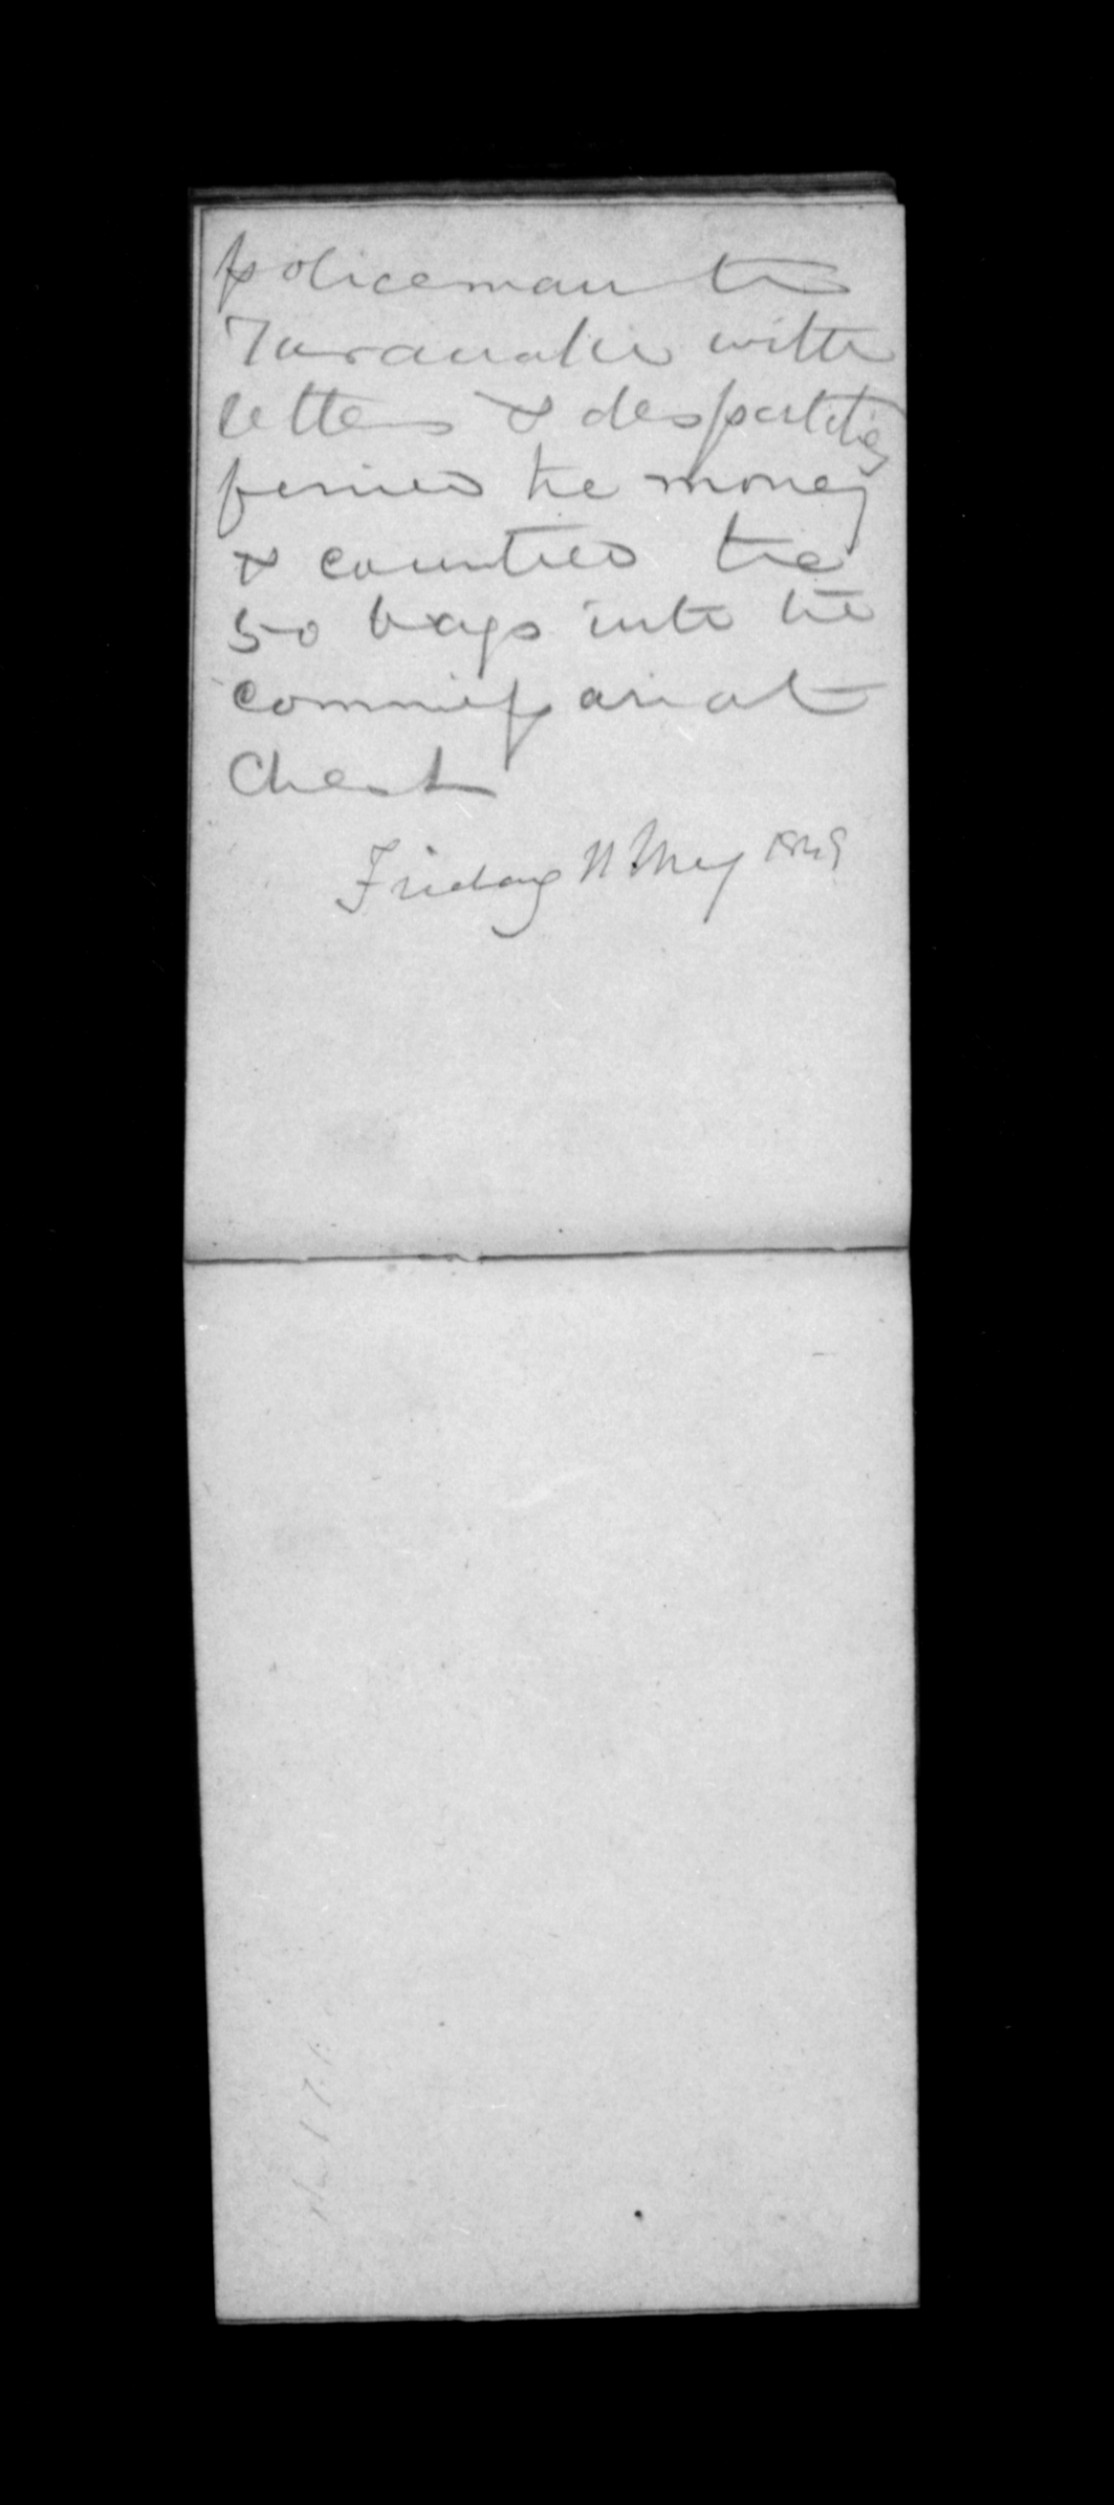 policeman to
Taranaki with
letters & despatches
ferried the money
& counted the
50 bags into the
commissariat
Chest
Friday 11 May 1849